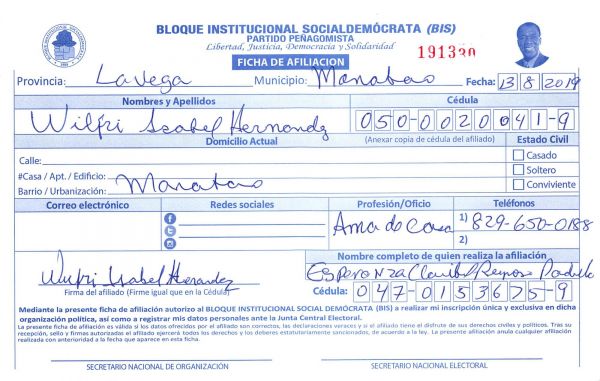 BLOQUE INSTITUCIONAL SOCIALDEMÓCRATA (BIS)
PARTIDO PEÑAGOMISTA
Libertad, Justicia, Democracia y Solidaridad
191330
FICHA DE AFILIACION
Provincia: La Vega Municipio: Manabao Fecha: 13 8 2019
Nombres y Apellidos Cédula
Wilfri Isabel Hernandez 050-0020041-9
Domicilio Actual (Anexar copia de cédula del afiliado) Estado Civil
Calle: Casado
#Casa / Apt. / Edificio: Soltero
Barrio / Urbanización: Manabao Conviviente
Correo electrónico Redes sociales Profesión/Oficio Teléfonos
Ama de Casa 1) 829-650-0188
2)
Nombre completo de quien realiza la afiliación
Wilfri Isabel Hernandez Esperanza Reynoso
Firma del afiliado (Firme igual que en la Cédula) Cédula: 047-0153675-9
Mediante la presente ficha de afiliación autorizo al BLOQUE INSTITUCIONAL SOCIAL DEMÓCRATA (BIS) a realizar mi inscripción única y exclusiva en dicha
organización política, así como a registrar mis datos personales ante la Junta Central Electoral.
La presente ficha de afiliación es válida si los datos ofrecidos por el afiliado son correctos, las declaraciones veraces y si el afiliado tiene el disfrute de sus derechos civiles y políticos. Tras su
recepción, sello y firmas autorizadas el afiliado ejercerá todos los derechos y los deberes estatutariamente sancionados, de acuerdo a la ley. La presente afiliación anula cualquier afiliación
realizada con anterioridad a la fecha que aparece en esta ficha.
SECRETARIO NACIONAL DE ORGANIZACIÓN SECRETARIO NACIONAL ELECTORAL